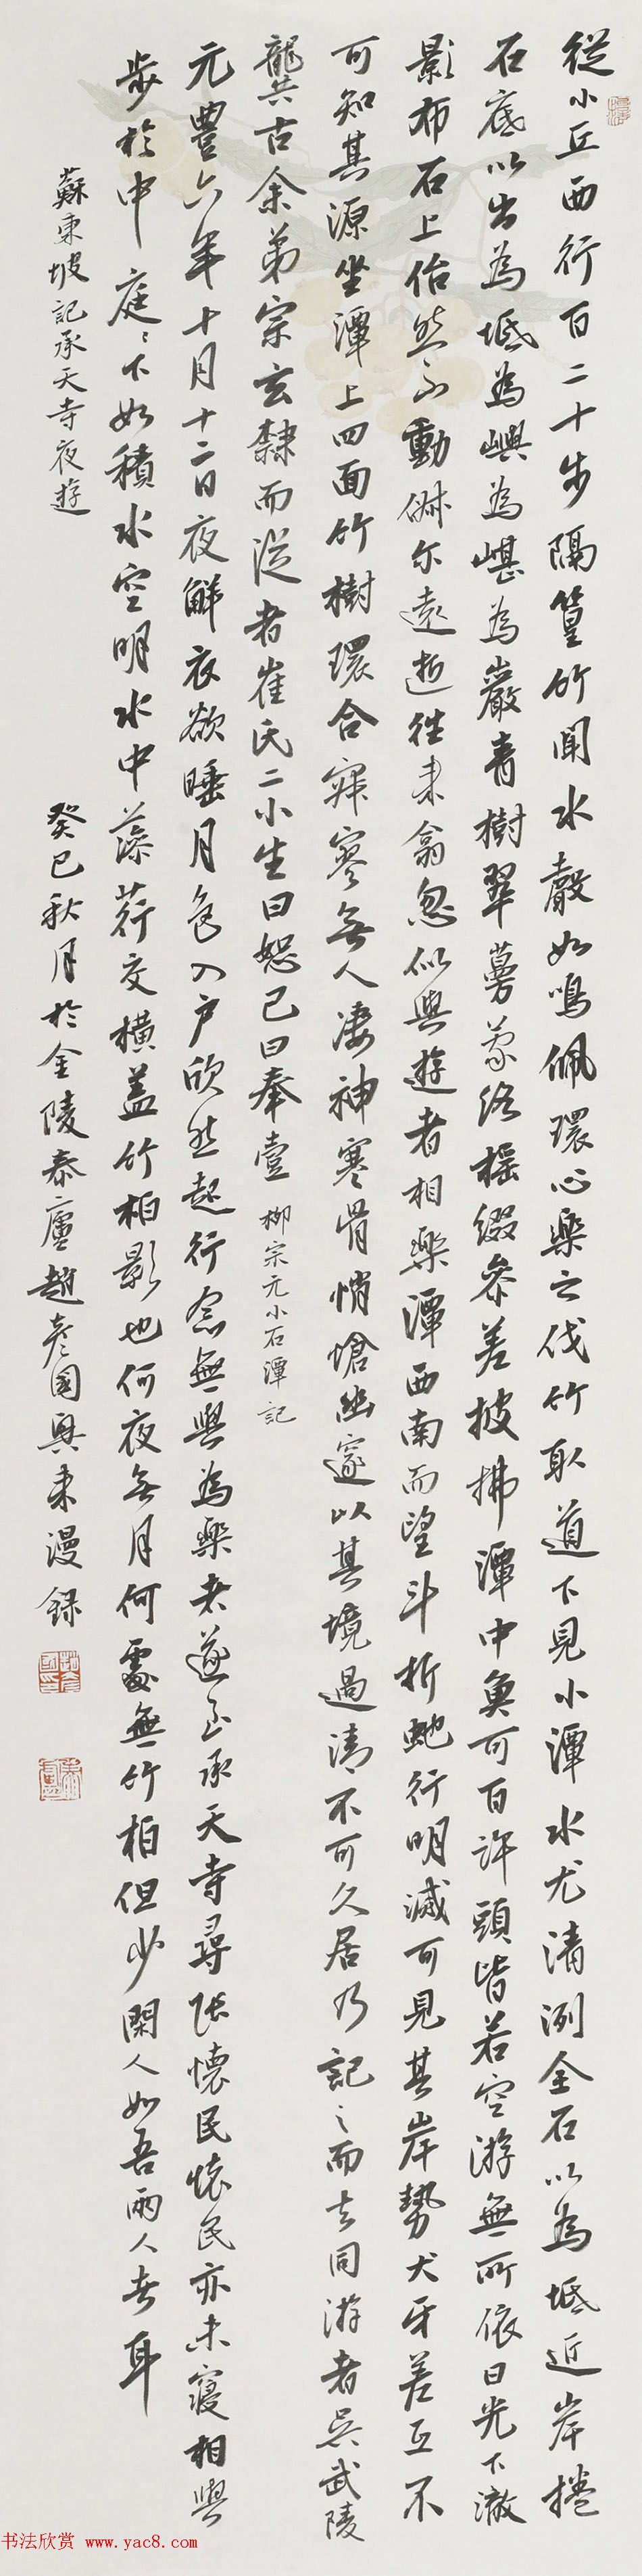 從小丘西行百二十步隔篁竹聞水聲如鳴佩環心樂之伐竹取道下見小潭水尤清洌全石以為坻近岸捲
石底以出為坻為嶼為嵁為巖青樹翠蔓蒙絡搖綴參差披拂潭中魚可百許頭皆若空游無所依日光下澈
影布石上佁然不動俶尔遠逝往來翕忽似與遊者相樂潭西南而望斗折虵行明滅可見其岸勢犬牙差互不
可知其源坐潭上四面竹樹環合寂寥無人凄神寒骨悄愴幽邃以其境過清不可久居乃記之而去同游者吳武陵
龔古余弟宗玄隸而從者崔氏二小生曰恕己曰奉壹 柳宗元小石潭記
元豐六年十月十二日夜解衣欲睡月色入戶欣然起行念無與為樂者遂至承天寺尋張懷民懷民亦未寢相與
步於中庭庭下如積水空明水中藻荇交橫蓋竹柏影也何夜無月何處無竹柏但少閑人如吾兩人者耳
蘇東坡記承天寺夜遊
癸巳秋月於金陵泰廬趙彥國興來漫錄
书法欣赏 www.yac8.com